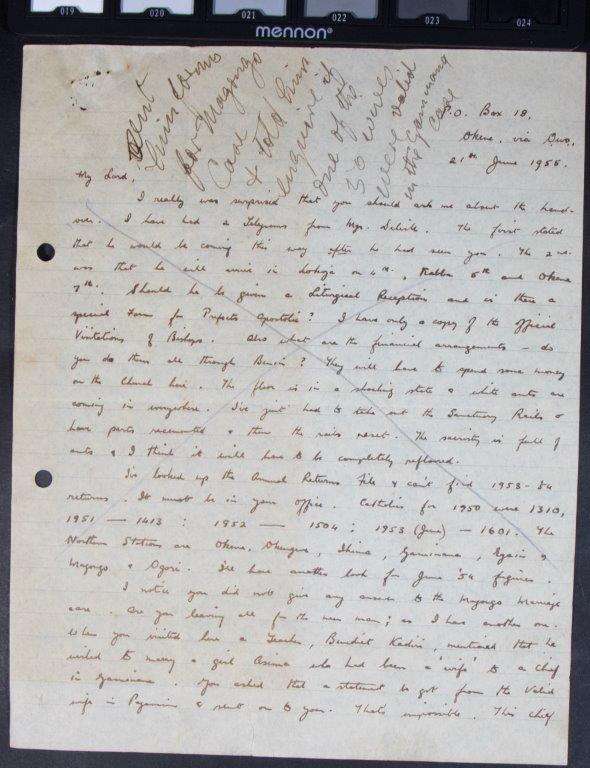 019 020 021 022 023 024
mennon®
Sent
him forms
for Magongo
Case
& told him
enquire if
one of the
50 wives
were valid
in the Ganinana
case
P.O. Box 18,
Okene, via Owo,
21st June 1955.
My Lord,
I really was surprised that you should ask me about the hand-
over. I have had a Telegrams from Mgr. Delisle. The first stated
that he would be coming this way after he had seen you. The 2nd.
was that he will arrive in Lokoja on 4th., Kabba 6th and Okene
7th. Should he be given a Liturgical Reception and is there a
special Form for Prefects Apostolic? I have only a copy of the official
Visitations of Bishops. Also what are the financial arrangements - do
you do them all through Benin? They will have to spend some money
on the Church here. The floor is in a shocking state & white ants are
coming in everywhere. I've just had to take out the Sanctuary Rails &
have parts recemented & then the rails reset. The sacristy is full of
ants & I think it will have to be completely refloored.
I've looked up the Annual Returns File & can't find 1953-54
returns. It must be in your office. Catholics for 1950 were 1310,
1951 — 1413 ; 1952 — 1504 ; 1953 (June) — 1601. The
Northern Stations are Okene, Okengwe, Ihima, Ganinana,
Magongo & Ogori. I'll have another look for June '54 figures.
I notice you did not give any answer to the Magongo Marriage
case. Are you leaving all for the new man; as I has another one.
When you visited here a Teacher, Benedict Kadiri, mentioned that he
wished to marry a girl Asima who had been a 'wife' to a Chief
in Ganinana. You asked that a statement be got from the Valid
wife in Paganism & sent on to you. Thats impossible. This Chief